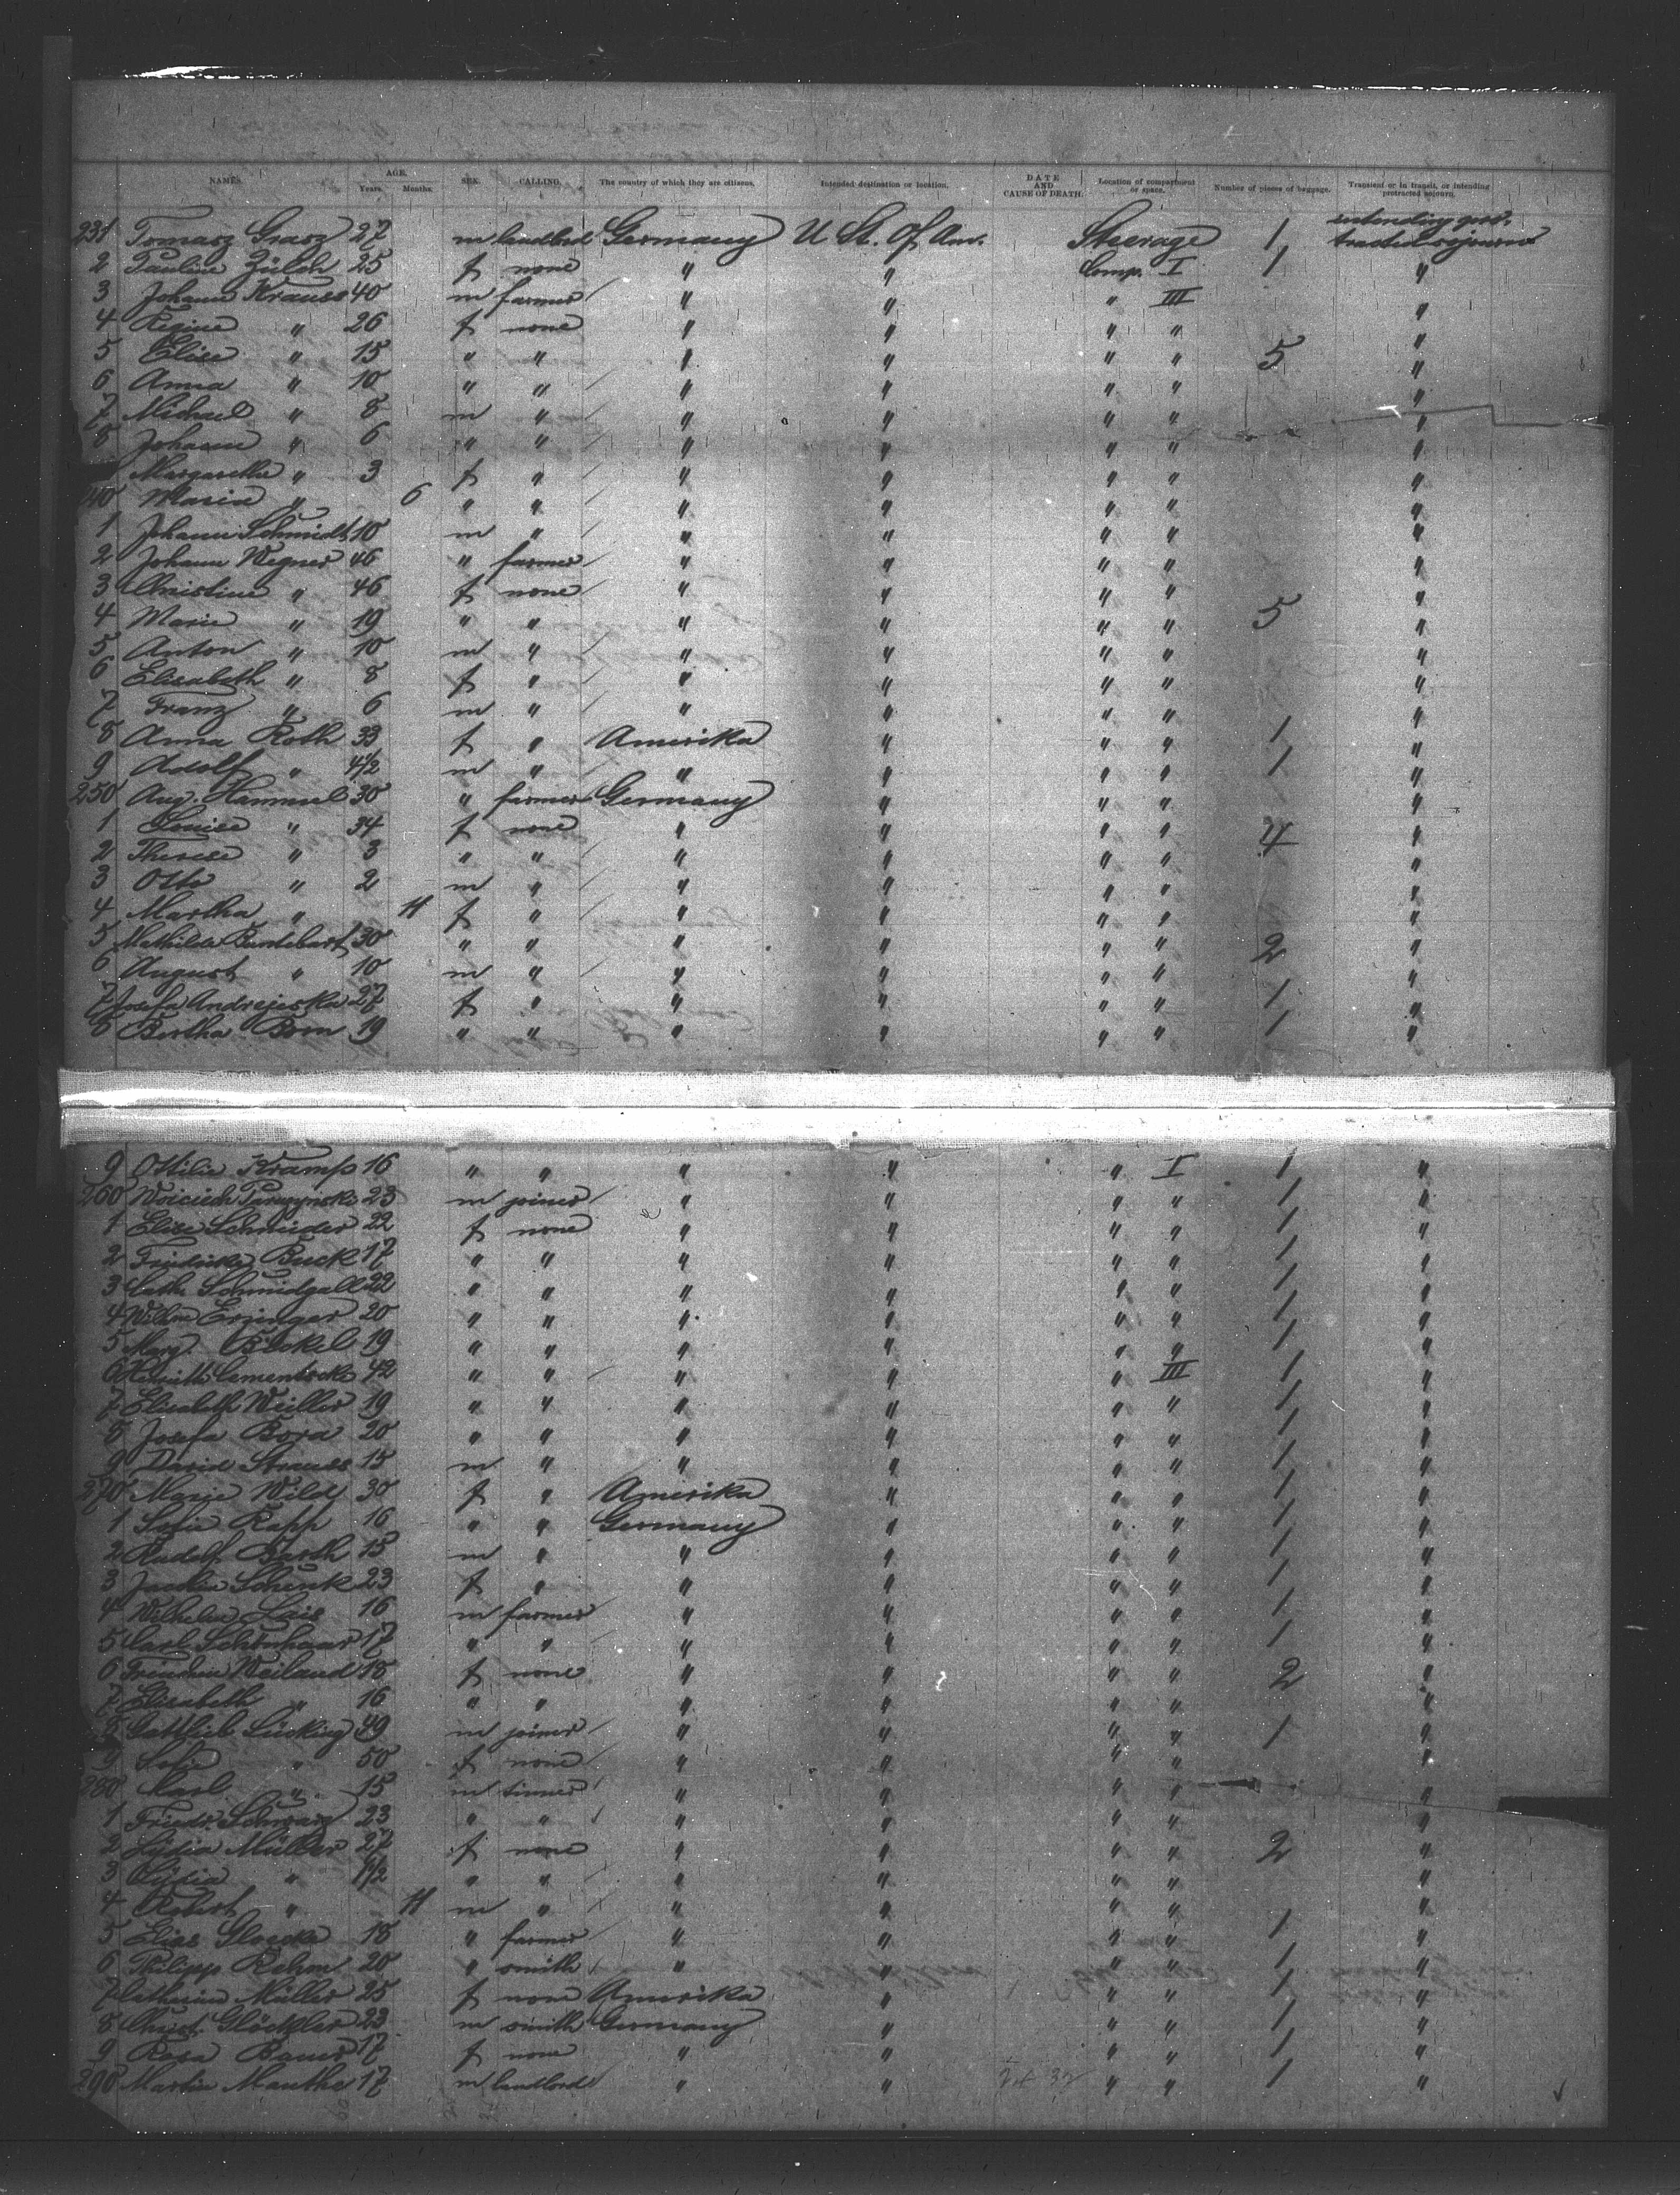 NAMES. AGE. Years. Months. SEX. CALLING. The country of which they are citizens. Intended destination or location. DATE AND CAUSE OF DEATH. Location of compartment or space. Number of pieces of baggage. Transient or in transit, or intending protracted sojourn.
231 Tomasz Grasz 27 m landlord Germany U St. of Am. Steerage 1 intending protracted sojourn
2 Pauline Zülch 25 f none " " Comp. I 1 "
3 Johann Krauss 40 m farmer " " " III "
4 Regine " 26 f none " " " " "
5 Elise " 15 " " " " " " 5 "
6 Anna " 10 " " " " " " "
7 Michael " 8 m " " " " " "
8 Johann " 6 " " " " " " "
Margaretha " 3 f " " " " " "
240 Maria " 6 " " " " " " "
1 Johann Schmidt 10 m " " " " " "
2 Johann Wegner 46 " farmer " " " " "
3 Christine " 46 f none " " " " "
4 Marie " 19 " " " " " " 5 "
5 Anton " 10 m " " " " " "
6 Elisabeth " 8 f " " " " " "
7 Franz " 6 m " " " " " "
8 Anna Roth 33 f " Amerika " " " 1 "
9 Adolf " 4 1/2 m " " " " " 1 "
250 Aug. Hammel 30 " farmer Germany " " " "
1 Louise " 34 f none " " " " 4 "
2 Therese " 3 " " " " " " "
3 Otto " 2 m " " " " " "
4 Martha " 11 f " " " " " "
5 Mathilde Buntebart 30 " " " " " " 2 "
6 August " 10 m " " " " " "
7 Josefa Andrejeska 27 f " " " " " 1 "
8 Bertha Born 19 " " " " " " 1 "
9 Ottilie Kramp 16 " " " " " I 1 "
260 Woiciech 23 m joiner " " " " 1 "
1 Elise Schneider 22 f none " " " " 1 "
2 Friedricke Buck 17 " " " " " " 1 "
3 Cath. Schmidgall 22 " " " " " " 1 "
4 Wilhne 20 " " " " " " 1 "
5 Marg. Böckel 19 " " " " " " 1 "
6 42 " " " " " III 1 "
7 Elisabeth Weiller 19 " " " " " " 1 "
8 Josefa Bora 20 " " " " " " 1 "
9 David Strauss 15 m " " " " " 1 "
270 Marie Wild 30 f " Amerika " " " 1 "
1 Sofie Rapp 16 " " Germany " " " 1 "
2 Rudolf Barth 15 m " " " " " 1 "
3 Schenk 23 f " " " " " 1 "
4 Wilhelm Lais 16 m farmer " " " " 1 "
5 Carl Schönhaar 17 " " " " " " 1 "
6 Weiland 18 f none " " " " 2 "
7 Elisabeth " 16 " " " " " " "
8 Gottlieb Lücking 49 m joiner " " " " 1 "
9 Sofie " 50 f none " " " " "
280 Carl " 15 m tinner " " " " "
1 Friedr. Schwarz 23 " " " " " " "
2 Lydia Müller 27 f none " " " " 2 "
3 Lydia " 1 1/2 " " " " " " "
4 Robert " 11 m " " " " " "
5 Elias Gloecke 18 " farmer " " " " 1 "
6 Philipp Rehm 20 " smith " " " " 1 "
7 Catharine Müller 25 f none Amerika " " " 1 "
8 Christ. Glöckler 23 m smith Germany " " " 1 "
9 Rosa Bauer 17 f none " " " " 1 "
290 Martin Manthe 17 m landlord " " " " 1 "